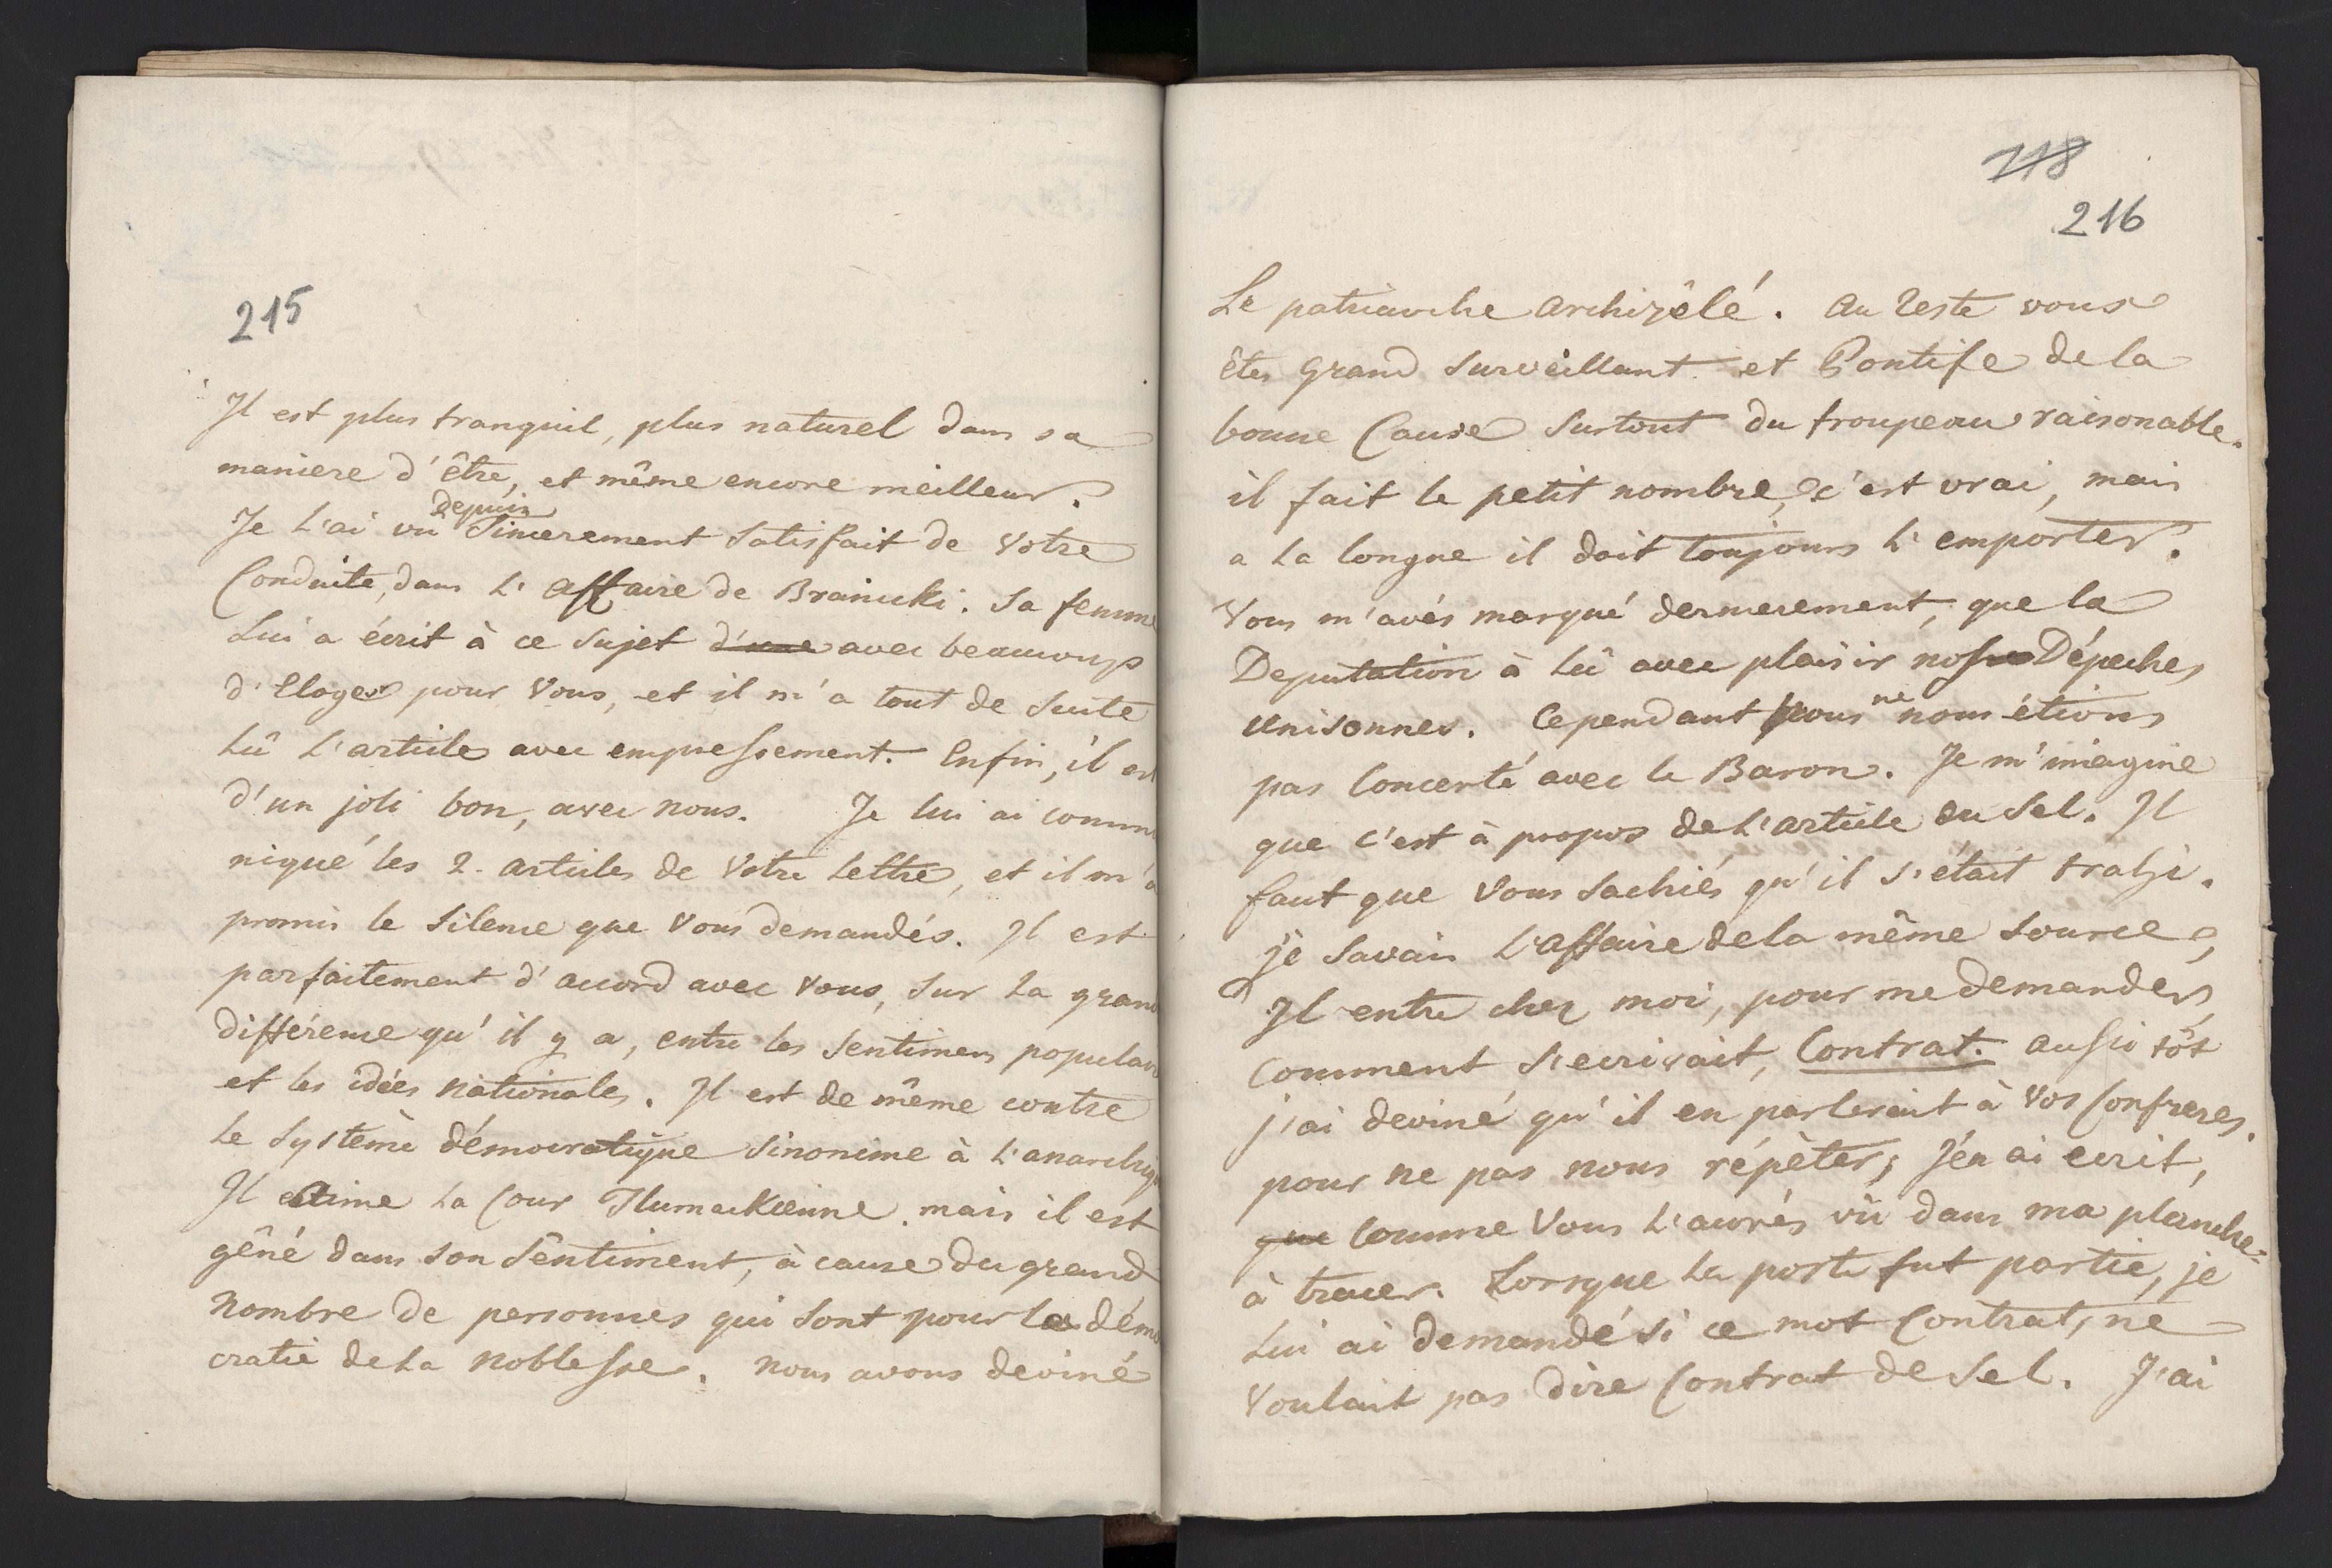 215
Il est plus tranquil, plus naturel dans sa
maniere d'être, et même encore meilleur.
Depuis
Je l'ai vû Sincerement Satisfait de Votre
Conduite, dans l'affaire de Branicki. Sa femme
Lui a écrit à ce Sujet d'une avec beaucoups
d'Eloges pour Vous, et il m'a tout de Suite
Lû l'article avec empressement. Enfin, il est
d'un joli bon, avec nous. Je lui ai commu
niqué les 2. articles de Votre Lettre, et il m'a
promis le Silence que Vous demandés. Il est
parfaitement d'accord avec Vous, Sur la grand
différence qu'il y a, entre les Sentimens populair
et les idées nationales. Il est de même contre
Le Système démocratique Sinonime à l'anarchiq
Il estime la Cour Tlumackienne. mais il est
gêné dans son Sentiment, à cause du grand
Nombre de personnes qui Sont pour la démo
cratie de La Noblesse. nous avons deviné
118
216
Le patriarche archizêlé. au Reste vous
êtes Grand Surveillant et Pontife de la
bonne Cause Surtout du troupeau raisonable.
il fait le petit nombre, c'est vrai, mais
a la longue il doit toujours l'emporter.
Vous m'avés marqué dernierement, que la
Deputation à Lû avec plaisir nos Dépeches
unisonnes. Cependant nous ne nous étions
pas Concerté avec le Baron. Je m'imagine
que c'est à propos de l'article du Sel. Il
faut que Vous Sachiés qu'il s'était trahi.
je Savais l'affaire de la même Source,
Il entre chez moi, pour me demander,
Comment S'ecrivait, Contrat. aussi tôt
j'ai deviné qu'il en parlerait à Vos Confreres.
pour ne pas nous répèter; J'en ai ecrit,
que Comme Vous l'aurés vû dans ma planche-
à tracer. Lorsque la poste fut partie, je
Lui ai demandé Si ce mot Contrat, ne
Voulait pas dire Contrat de Sel. J'ai